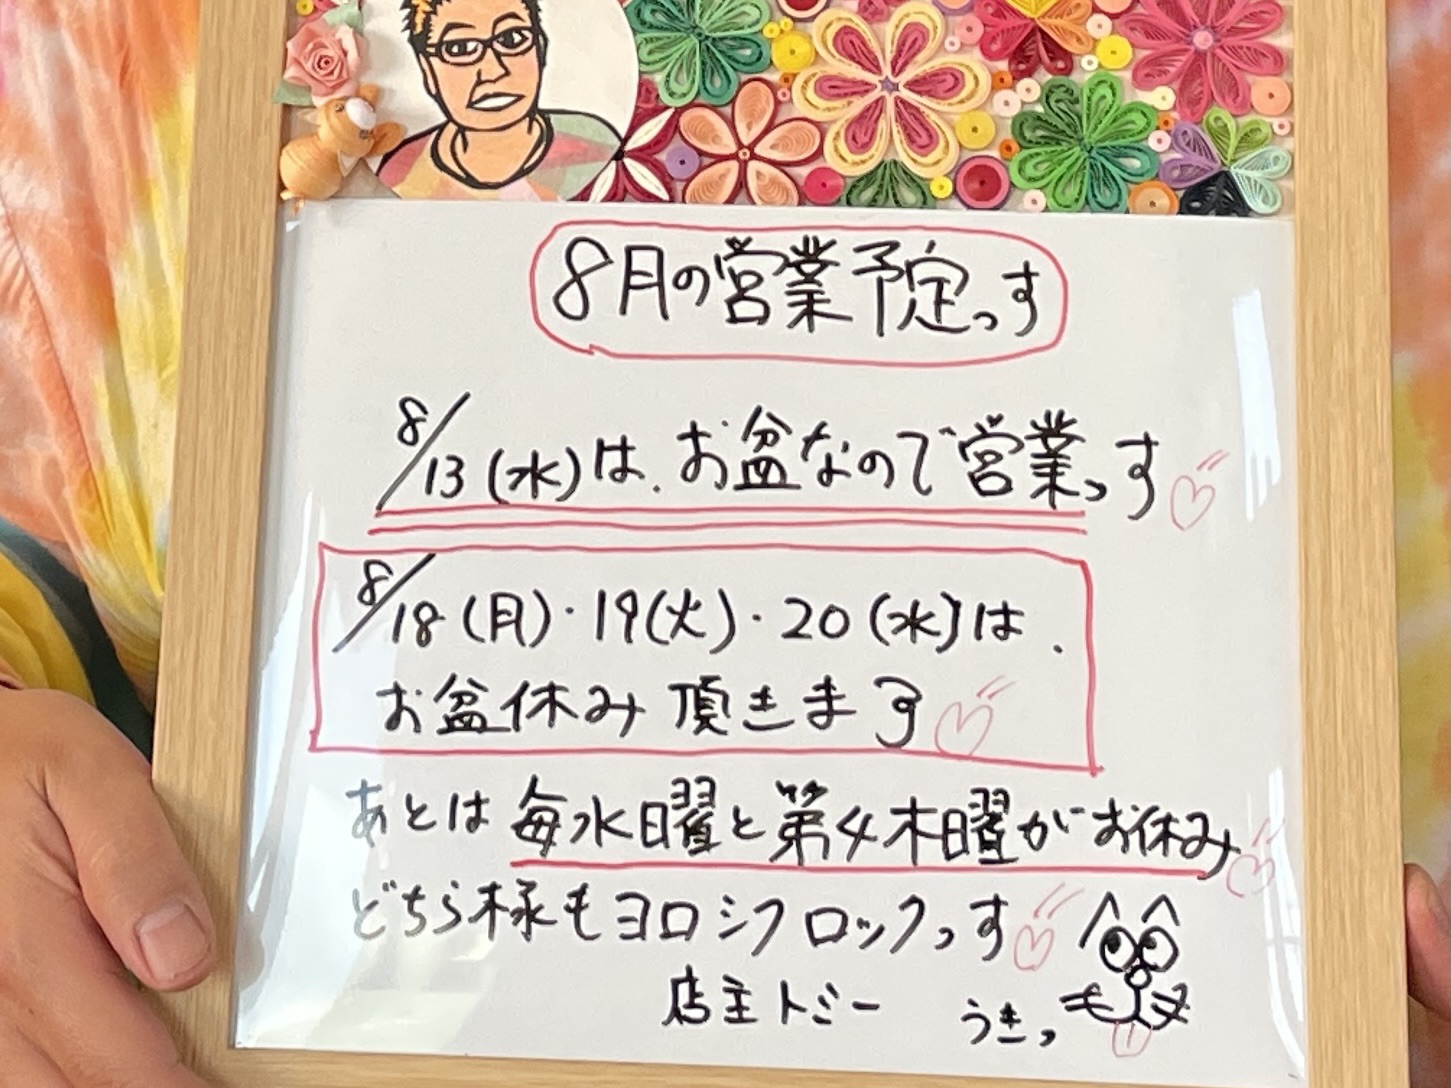 8月の営業予定っす
8/13(水)は、お盆なので営業っす
8/18(月)・19(火)・20(水)は、
お盆休み頂きます
あとは毎水曜と第4木曜がお休み
どちら様もヨロシクロックっす
店主トミー
うきっ